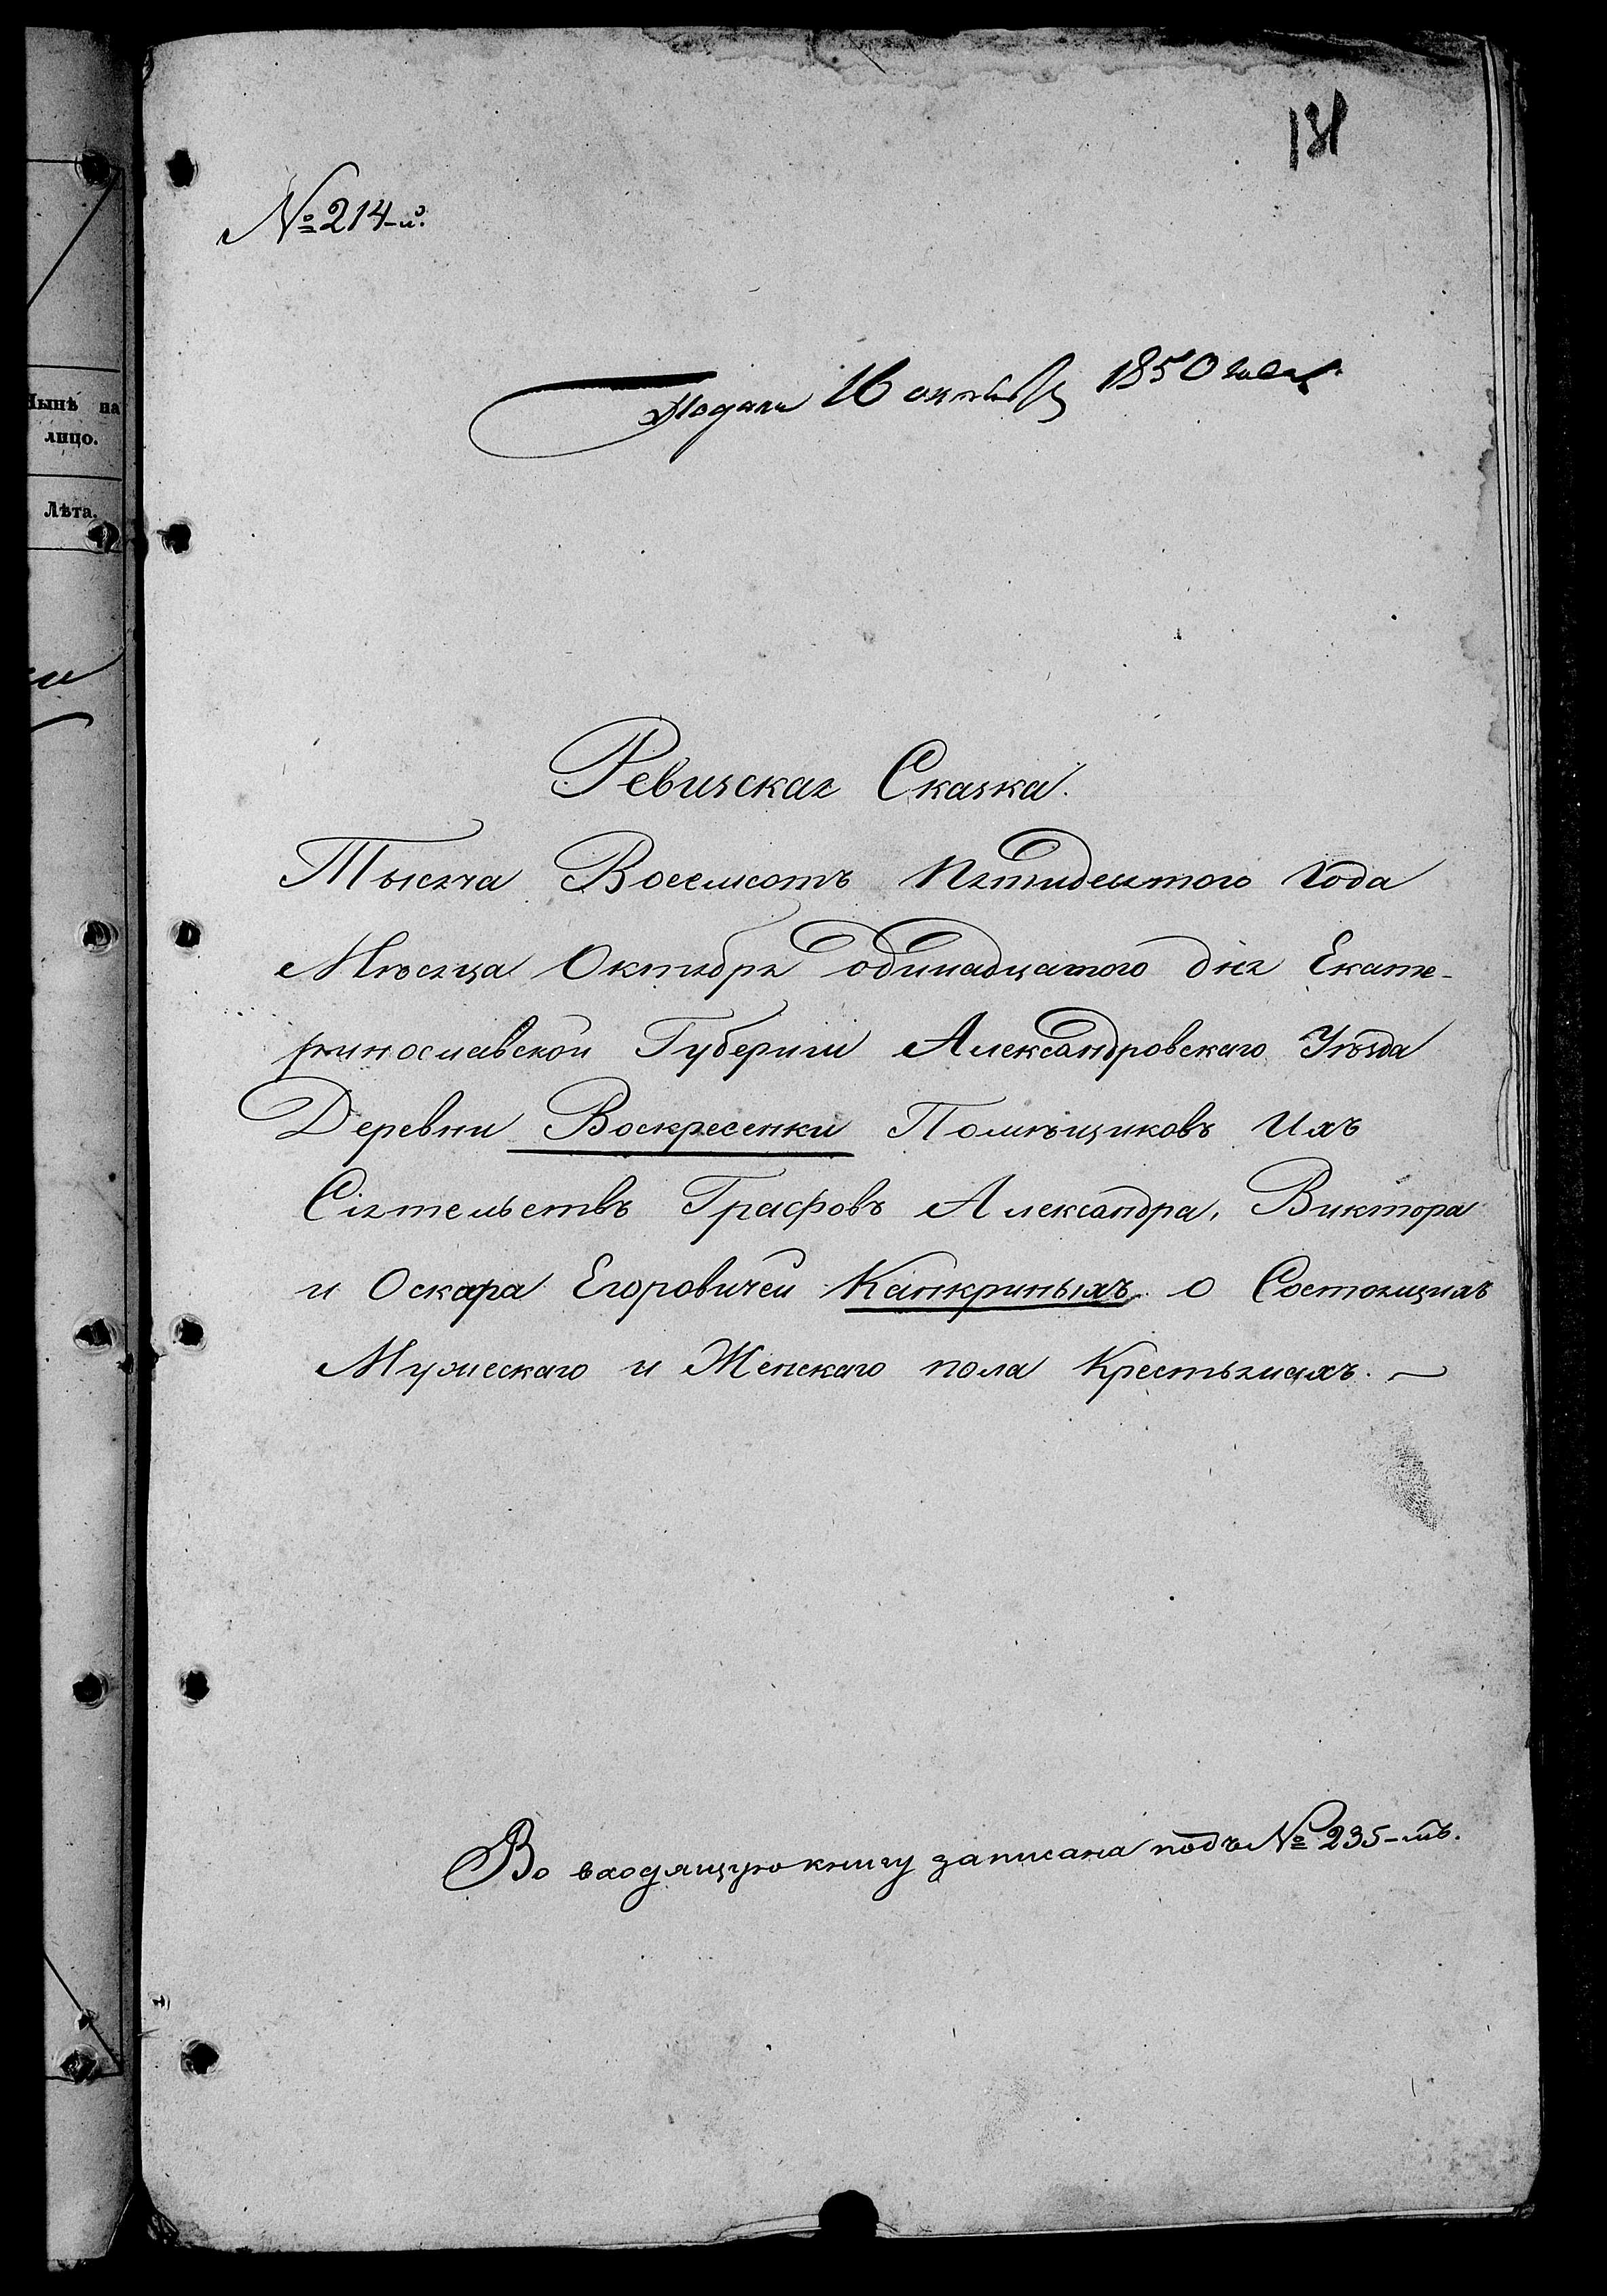 181
№ 214-й.
Подана 16 октября 1850 года
Нынѣ на
лицо.
Лѣта.
Ревизская Сказка.
Тысяча Восемсотъ Пятидесятого Года
Мѣсяца Октября одинадцатого дня Екате-
ринославской Губернии Александровскаго Уѣзда
Деревни Воскресенки Помѣщиковъ Ихъ
Сіятельствъ Графовъ Александра, Виктора
и Оскара Егоровичей Канкриныхъ. о Состоящихъ
Мужескаго и Женскаго пола Крестьянахъ. —
Во входящую книгу записана подъ № 235-мъ.